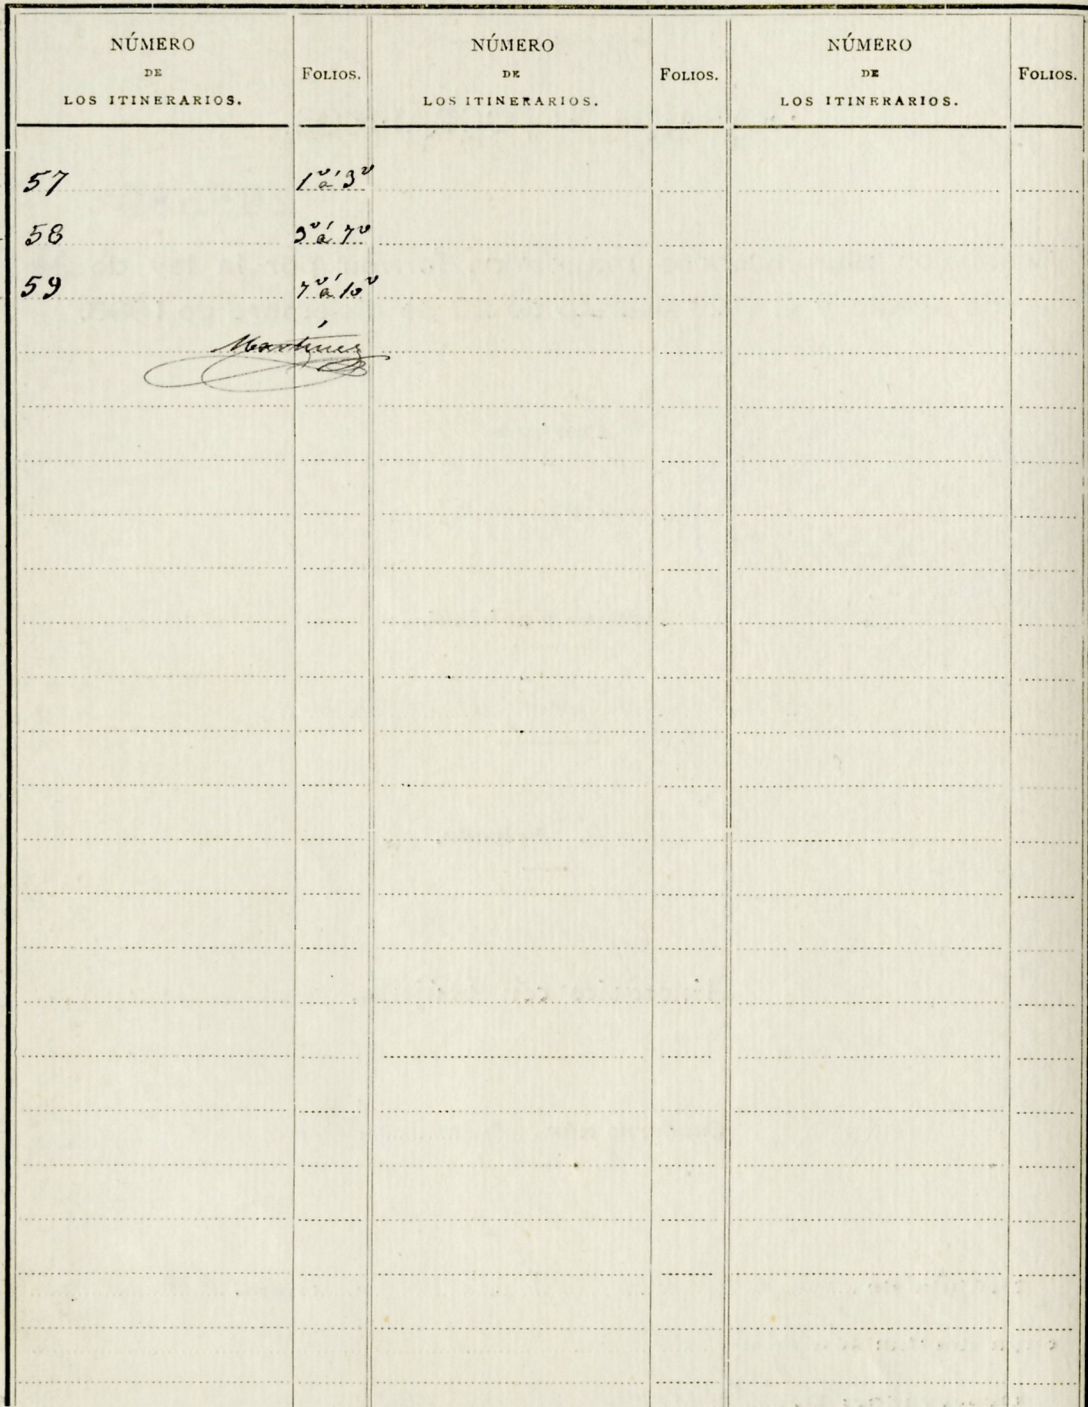 NÚMERO DE LOS ITINERARIOS. FOLIOS. NÚMERO DE LOS ITINERARIOS. FOLIOS. NÚMERO DE LOS ITINERARIOS. FOLIOS.
57 1º á 3º
58 3º á 7º
59 7º á 10º
Martínez